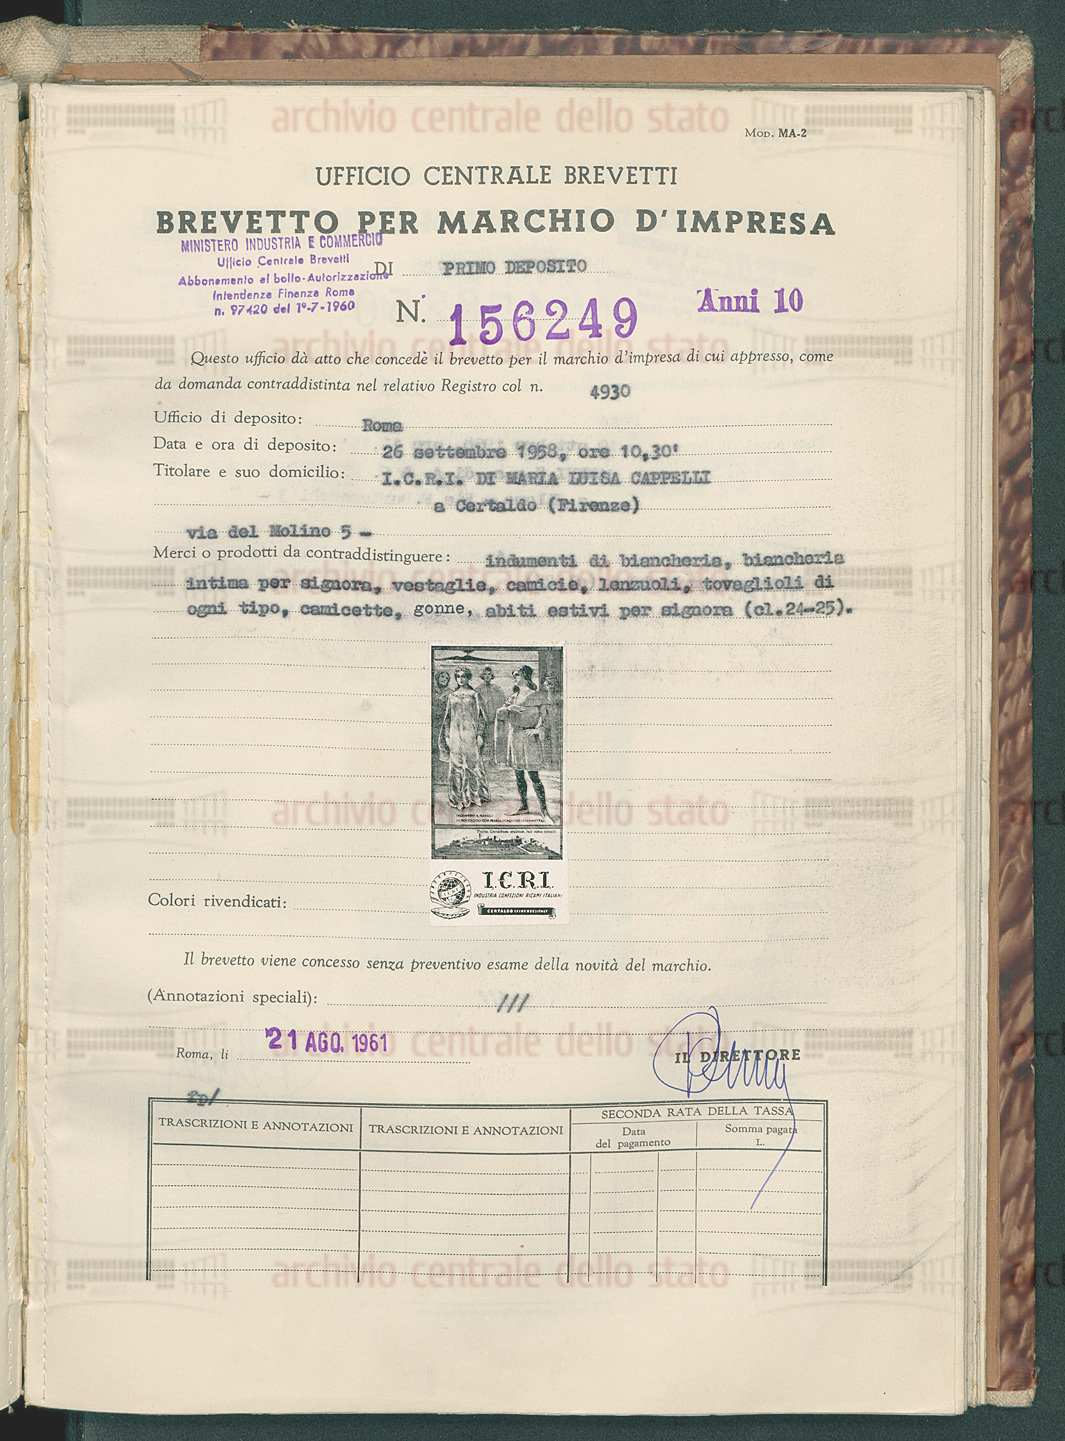 archivio centrale dello stato
Mod. MA-2
UFFICIO CENTRALE BREVETTI
BREVETTO PER MARCHIO D'IMPRESA
MINISTERO INDUSTRIA E COMMERCIO
Ufficio Centrale Brevetti
Abbonamento al bollo-Autorizzazione
Intendenza Finanza Roma
n. 97420 del 1º-7-1960
DI PRIMO DEPOSITO
N. 156249
Anni 10
Questo ufficio dà atto che concede il brevetto per il marchio d'impresa di cui appresso, come
da domanda contraddistinta nel relativo Registro col n. 4930
Ufficio di deposito: Roma
Data e ora di deposito: 26 settembre 1958, ore 10,30'
Titolare e suo domicilio: I.C.R.I. DI MARIA LUISA CAPPELLI
a Certaldo (Firenze)
via del Molino 5 -
Merci o prodotti da contraddistinguere: indumenti di biancheria, biancheria
intima per signora, vestaglie, camicie, lenzuoli, tovaglioli di
ogni tipo, camicette, gonne, abiti estivi per signora (cl.24-25).
archivio centrale dello stato
I.C.R.I.
INDUSTRIA CONFEZIONI RICAMI ITALIANI
CERTALDO
Colori rivendicati:
Il brevetto viene concesso senza preventivo esame della novità del marchio.
(Annotazioni speciali): ///
archivio centrale dello stato
Roma, li 21 AGO. 1961
IL DIRETTORE
TRASCRIZIONI E ANNOTAZIONI
TRASCRIZIONI E ANNOTAZIONI
SECONDA RATA DELLA TASSA
Data
del pagamento
Somma pagata
L.
archivio centrale dello stato